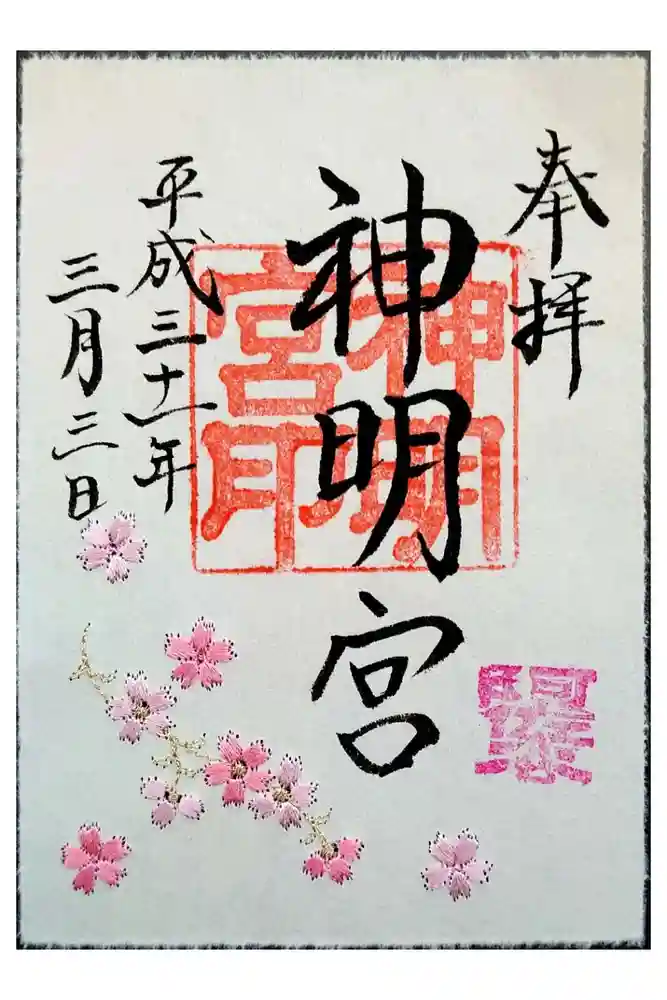 奉拝
神明宮
平成三十一年
三月三日
神明宮印